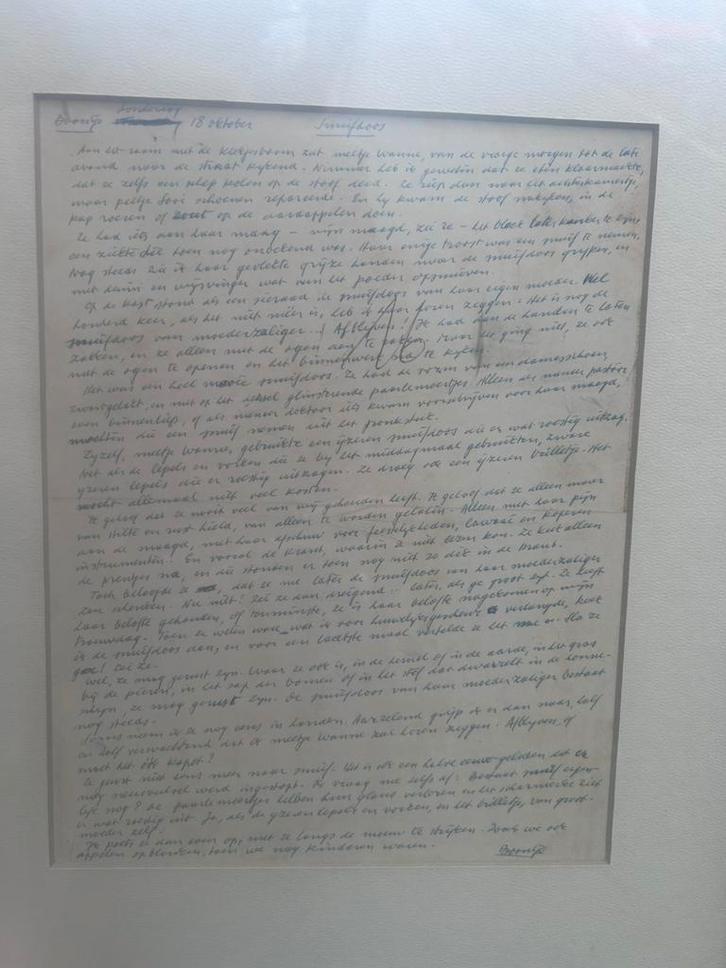 Boontje donderdag 18 oktober Snuifdoos
Aan het raam met de kerseboom zat meetje Wanne, van de vroege morgen tot de late
avond naar de straat kijkend. Nimmer heb ik geweten dat ze eten klaarmaakte,
dat ze zelfs een schep kolen op de stoof deed. Ze riep dan naar het achterkamertje,
waar peetje schoenen repareerde. En hij kwam de stoof nakijken, in de
kap roeren of zout op de aardappelen doen.
Ze had iets aan haar maag – mijn maagd, zei ze – het bleek later kanker te zijn
een ziekte die toen nog onbekend was. Haar enige troost was een snuif te nemen.
Nog steeds zie ik haar gevlekte grijze handen naar de snuifdoos grijpen, en
met duim en wijsvinger wat van het poeder opsnuiven.
Op de kast stond als een sieraad de snuifdoos van haar eigen moeder. Wel
honderd keer, als het niet méér is, heb ik haar horen zeggen: Het is nog de
snuifdoos van moederzaliger. Afblijven! Ik had dan de handen te laten
zakken, en ze alleen met de ogen aan te raken. Maar het ging niet, ze ook
met de ogen te openen en het binnenwerk te kijken.
Het was een heel mooie snuifdoos. Ze had de vorm van een damesschoen,
zwartgelakt, en met op het deksel glinsterende paarlemoertjes. Alleen als meneer pastoor
even binnenliep, of als meneer doktoor iets kwam voorschrijven voor haar maagd,
mochten die een snuif nemen uit het pronkstuk.
Zijzelf, meetje Wanne, gebruikte een ijzeren snuifdoos die er wat roestig uitzag.
Net als de lepels en vorken die ze bij het middagmaal gebruikten, zware
ijzeren lepels die er roestig uitzagen. Ze droeg ook een ijzeren brilletje. Het
mocht allemaal niet veel kosten.
Ik geloof dat ze nooit veel van mij gehouden heeft. Ik geloof dat ze alleen maar
van stilte en rust hield, van alleen te worden gelaten. Alleen met haar pijn
aan de maagd, met haar afschuw voor feestelijkheden, lawaai en koperen
instrumenten. En vooral de krant, waarin ze niet lezen kon. Ze keek alleen
de prentjes na, en die stonden er toen nog niet zo dik in de krant.
Toch beloofde ze, dat ze me later de snuifdoos van haar moederzaliger
zou schenken. Nu niet! zei ze dan dreigend: later, als ge groot zijt. Ze heeft
haar belofte gehouden, of tenminste, ze is haar belofte nagekomen op mijn
trouwdag. Toen ze weten wou wat ik voor huwelijksgeschenk verlangde, keek
ik de snuifdoos aan, en voor een laatste maal vertelde ze het me: Sla ze
ga! zei ze.
Wel, ze mag gerust zijn. Waar ze ook is, in de hemel of in de aarde, in het gras
bij de pieren, in het sap der bomen of in het stof dat dwarrelt in de zonne-
schijn, ze mag gerust zijn. De snuifdoos van haar moederzaliger bestaat
nog steeds.
Soms neem ik ze nog eens in handen. Aarzelend grijp ik er dan naar, half
en half verwachtend dat ik meetje Wanne zal horen zeggen: Afblijven, of
moet het óók kapot?
Ze geurt niet eens meer naar snuif. Het is ook een halve eeuw geleden dat er
nog werd ingestopt. Ik vraag me zelfs af: Bestaat snuif eigen-
lijk nog? De paarlemoertjes hebben hun glans verloren en het scharniertje ziet
er wat roestig uit. Ja, als de ijzeren lepels en vorken, en het brilletje, van groot-
moeder zelf.
Ik poets ze dan even op, met ze langs de mouw te strijken. Zoals we ook
appelen opblonken, toen we nog kinderen waren.
Boontje